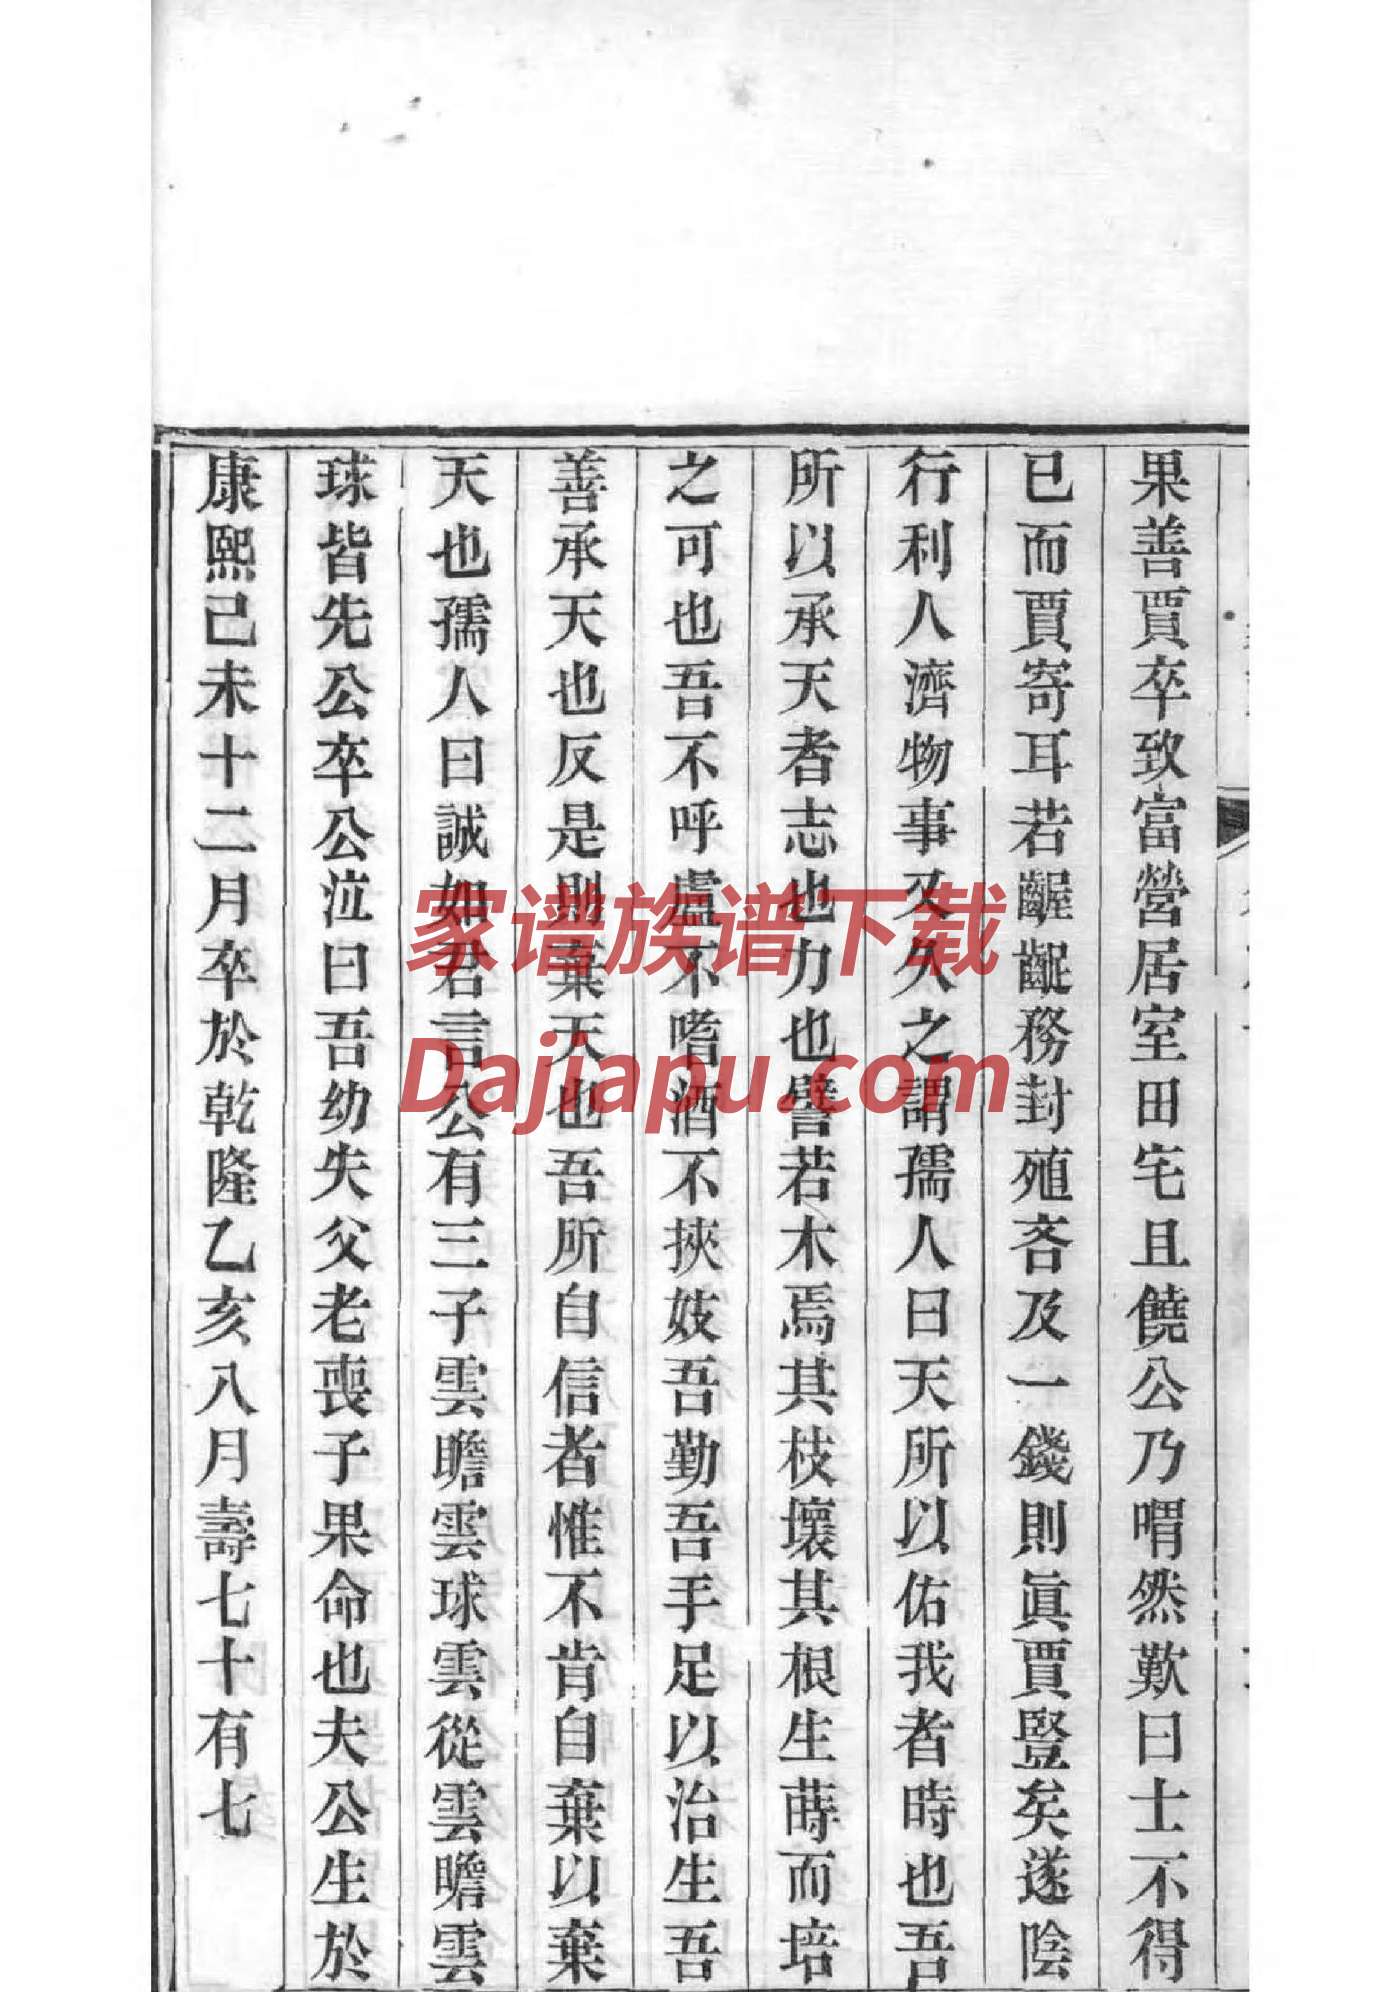 果善賈卒致富營居室田宅且饒公乃喟然歎曰士不得
已而賈寄耳若齷齪務封殖吝及一錢則眞賈豎矣遂陰
行利人濟物事又久之謂孺人曰天所以佑我者時也吾
所以承天者志也力也譬若木焉其枝壞其根生蒔而培
之可也吾不呼盧不嗜酒不挾妓吾勤吾手足以治生吾
善承天也反是則棄天也吾所自信者惟不肯自棄以棄
天也孺人曰誠如君言公有三子雲瞻雲球雲從雲瞻雲
球皆先公卒公泣曰吾幼失父老喪子果命也夫公生於
康熙己未十二月卒於乾隆乙亥八月壽七十有七
家谱族谱下载
Dajiapu.com